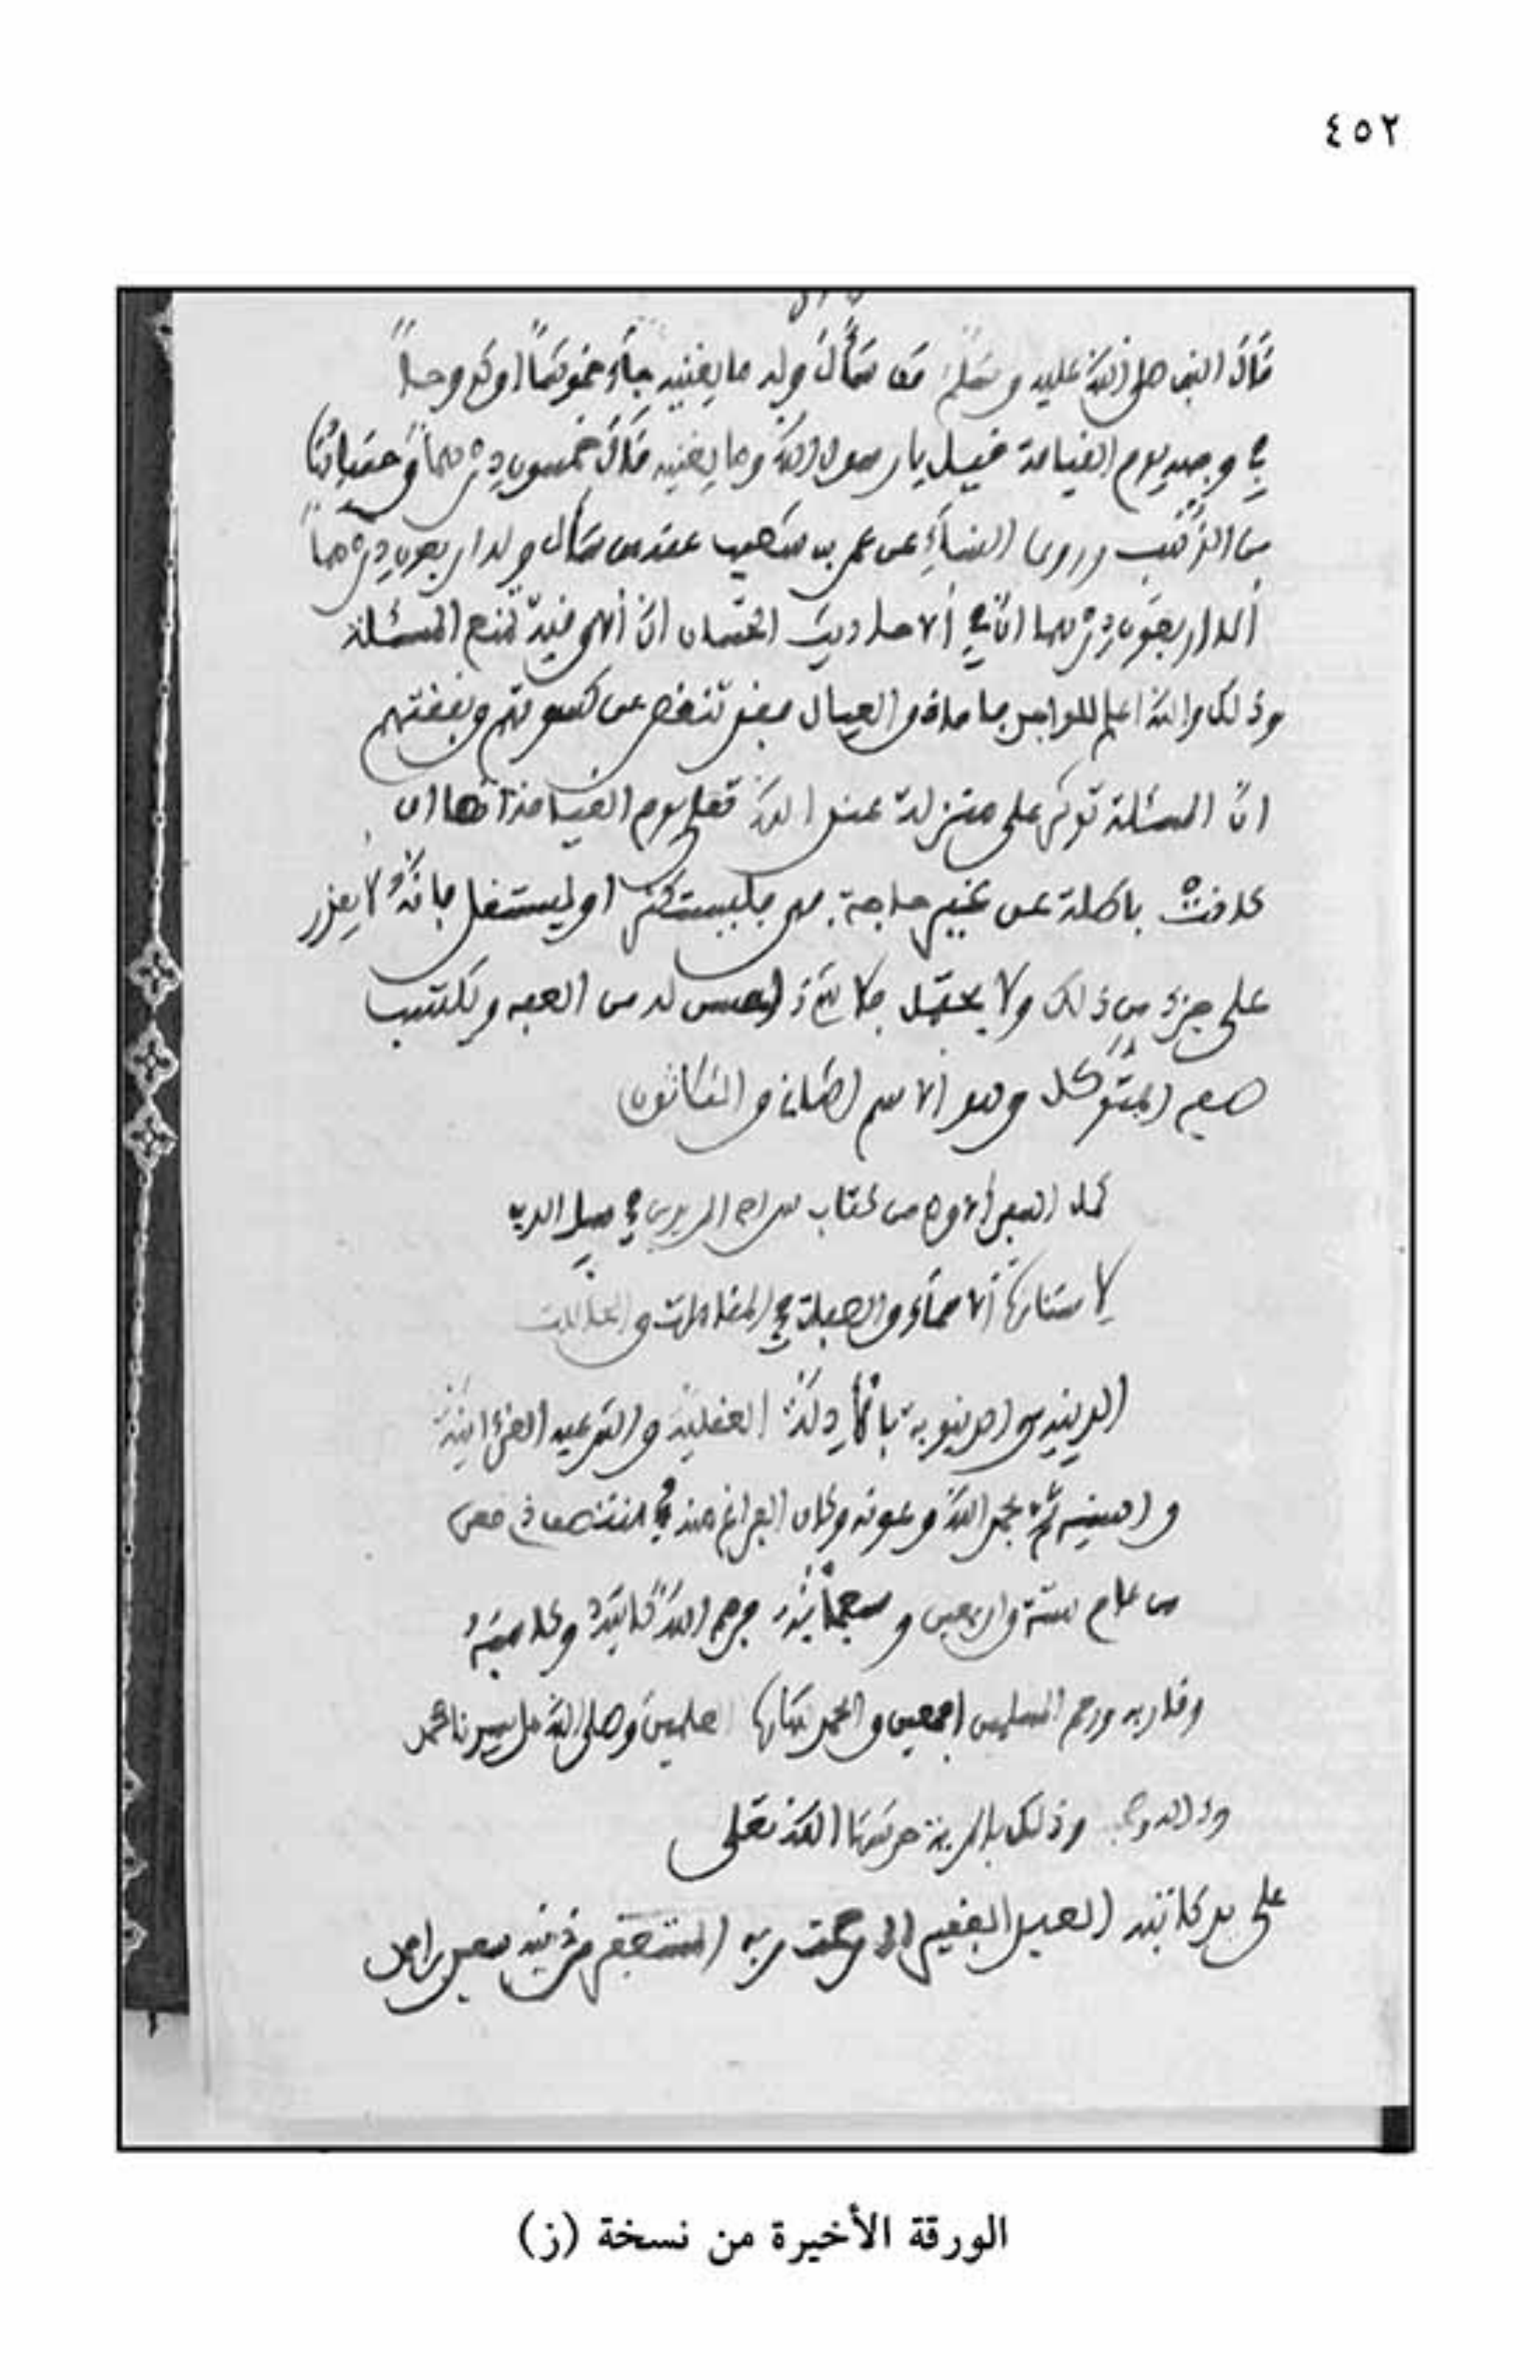 ٤٥٢
قال النبي صلى الله عليه وسلم من سأل وله ما يغنيه جاء خموشا او كدوحا
في وجهه يوم القيامة فقيل يا رسول الله وما يغنيه قال خمسون درهما او حسابها
من الذهب وروى النساءي عن عمرو بن شعيب من سأل وله اربعون درهما
اربعون درهما ان في الاحاديث الحسان ان تمنع المسئلة
وذلك والله اعلم للواجد والعيال تنقص عن كسوتهم ونفقتهم
ان المسئلة توثر على منزلة عند الله تعلى يوم القيامة ان
كانت باطلة عن غير حاجة فليستكثر او ليستقل فانه لا يقدر
على جزء من ذلك ولا يحتمل له من ويكتسب
المتوكل وهو الاسم الثاني والثلاثون
كمل السفر الاول من كتاب سراج المريدين في سبيل الدين
لاستنارة الاسماء والصفات في المقامات والحالات
الدينية والدنيوية بالادلة العقلية والشرعية القرءانية
والسنية تم بحمد الله وعونه وكان الفراغ منه في منتصف
من عام ستة واربعين وسبعمائة فرحم الله كاتبه وكاسبه
وقاريه ورحم المسلمين اجمعين والحمد لله رب العلمين وصلى الله على سيدنا محمد
وءاله وذلك بالمرية حرسها الله تعلى
على يد كاتبه العبد الفقير الى رحمت ربه المستغفر من ذنبه
الورقة الأخيرة من نسخة (ز)